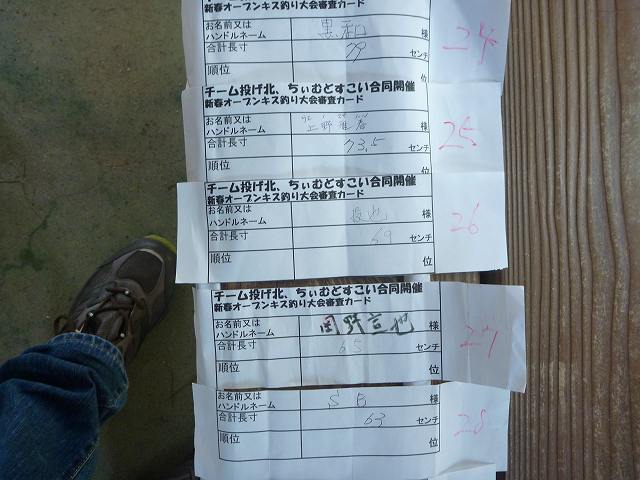 新春オープンキス釣り大会審査カード
お名前又は
ハンドルネーム 黒和 様
合計長寸 79 センチ
順位 位
24
チーム投げ北、ちぃむどすこい合同開催
新春オープンキス釣り大会審査カード
お名前又は
ハンドルネーム 様
合計長寸 73.5 センチ
順位 位
25
チーム投げ北、ちぃむどすこい合同開催
新春オープンキス釣り大会審査カード
お名前又は
ハンドルネーム 様
合計長寸 69 センチ
位
26
チーム投げ北、ちぃむどすこい合同開催
新春オープンキス釣り大会審査カード
お名前又は
ハンドルネーム 様
合計長寸 65 センチ
順位 位
27
お名前又は
ハンドルネーム 様
合計長寸 63 センチ
順位 位
28